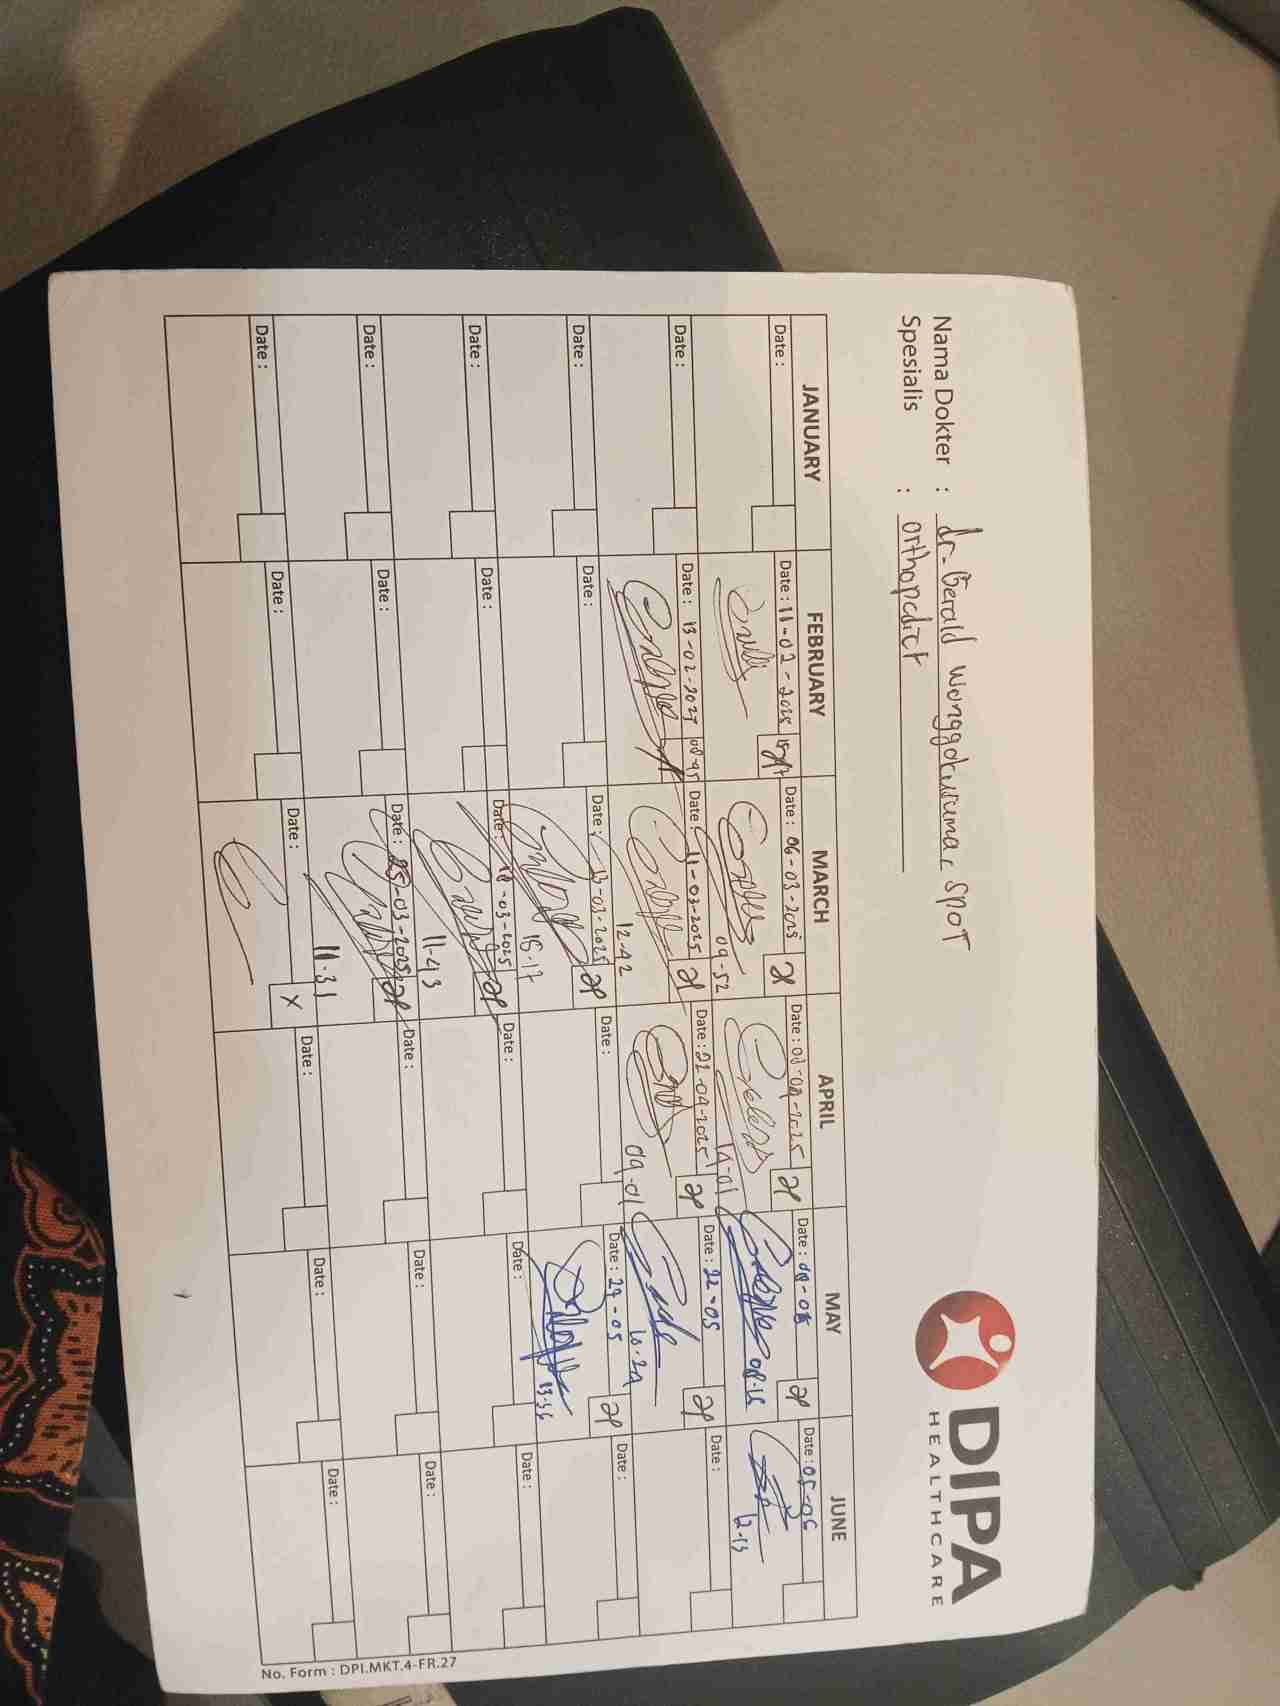 DIPA
HEALTHCARE
Nama Dokter : dr. Gerald Wonggokusuma, SpOT
Spesialis : orthopedict
JANUARY FEBRUARY MARCH APRIL MAY JUNE
Date : Date : 11-02-2025 Date : 06-03-2025 Date : Date : Date : 05-06
09-52 12-13
Date : Date : 13-02-2025 Date : 11-03-2025 Date : 22-04-2025 Date : 22-05 Date :
12-42 09-01
Date : Date : Date : 13-03-2025 Date : Date : 27-05 Date :
15-17 13-36
Date : Date : Date : 18-03-2025 Date : Date : Date :
11-43
Date : Date : Date : 25-03-2025 Date : Date : Date :
11-31
Date : Date : Date : X Date : Date : Date :
No. Form : DPI.MKT.4-FR.27